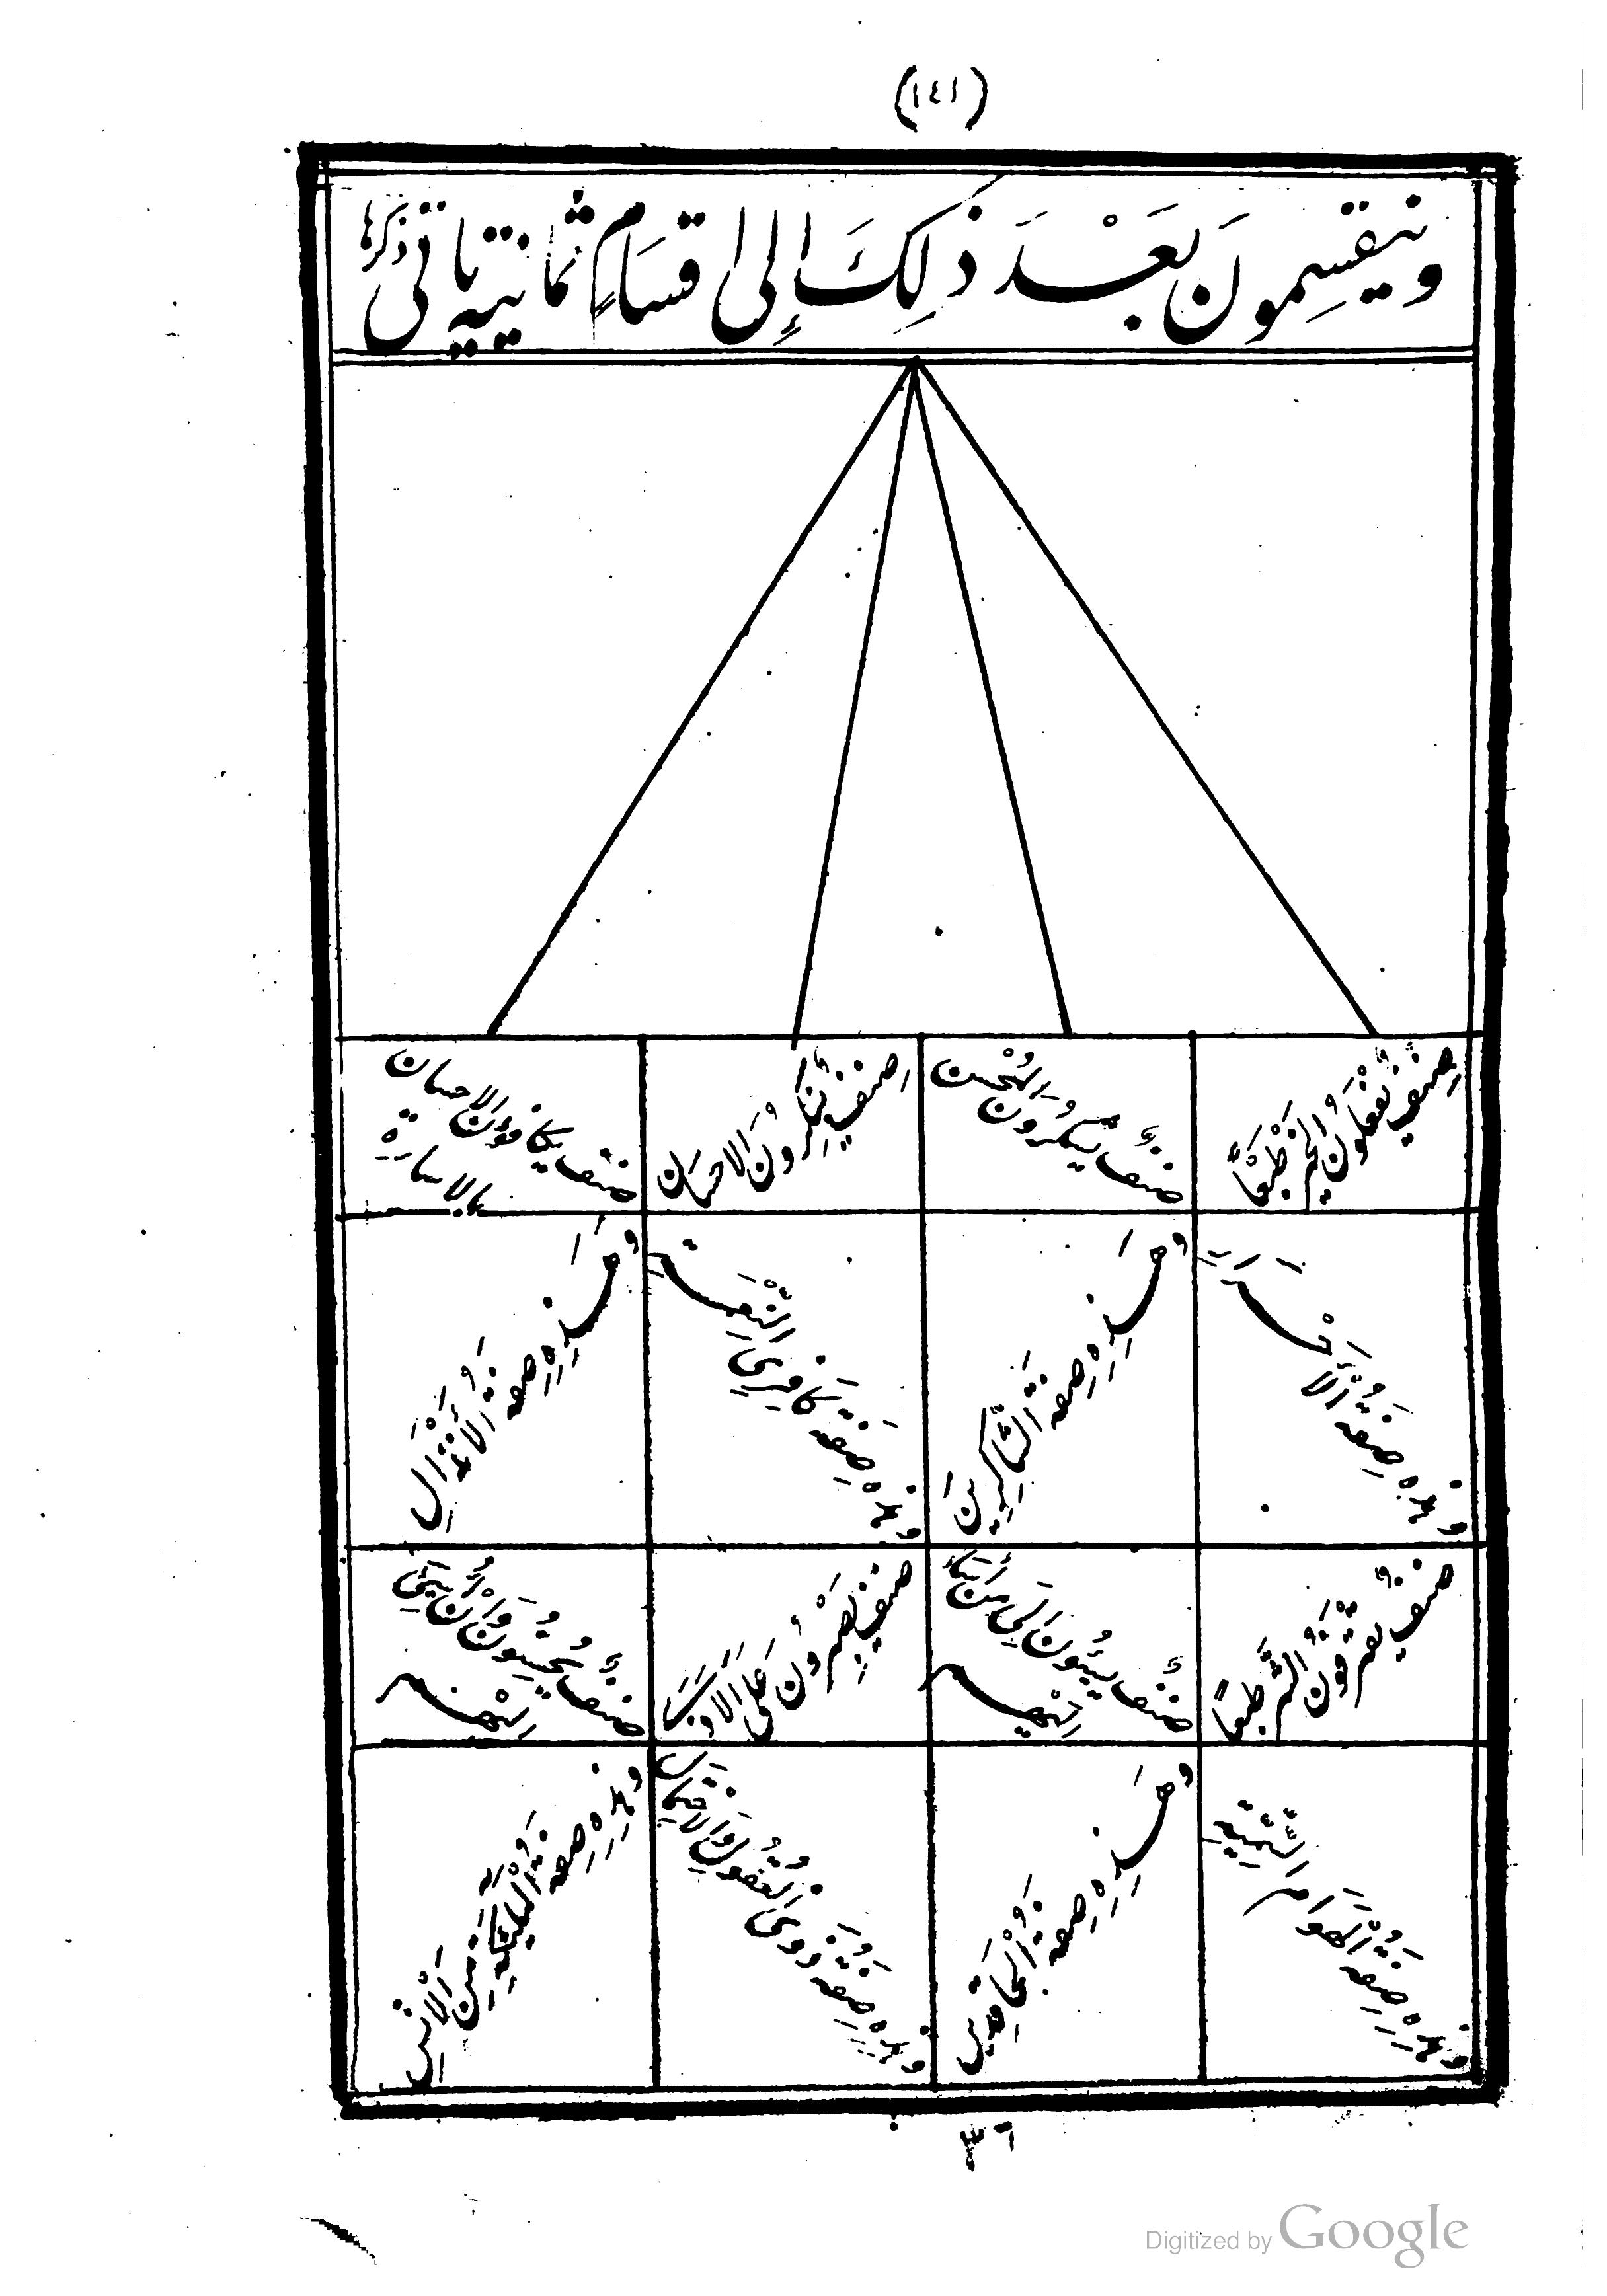 (١٤١)
وينقسمون بَعْدَ ذلِكَ إِلى اقسَامٍ ثمانية يأتي ذكرها
صنفٌ يَفْعَلُونَ الخَيْرَ طَبْعًا
صنفٌ يشكرون المُحْسن
صنفٌ يُنْكِرُونَ الاحسَان
صنف يكافؤن الاحسان
بالاساءة
وهذه صِفَةُ
وهَذِهِ صِفَةُ الشَّاكِرِينَ
وهذه صِفَةُ كَافِرِي النِّعْمَة
وهَذِهِ صِفَةُ الأَنْذَالِ
صنفٌ يَعْتَرِفُونَ الشَّرَّ طَبْعًا
صنفٌ يُسِيئُونَ إلَى مَنْ أَسَاءَ
إليهم
صنفٌ يَصْبِرُونَ عَلَى الأَذِيَّة
صنفٌ يُحْسِنُونَ وَإِنْ أُسِيءَ
إليهم
وهذه صِفَةُ الهَوَام السُّمِّيَّة
وهَذِهِ صِفَةُ
وهذه صِفَةُ ذَوِي العُقُولِ وَالاحْتِمَال
وهذه صِفَةُ المَلَائِكَةِ مِنَ الإنْسِ
٣٦
Digitized by Google